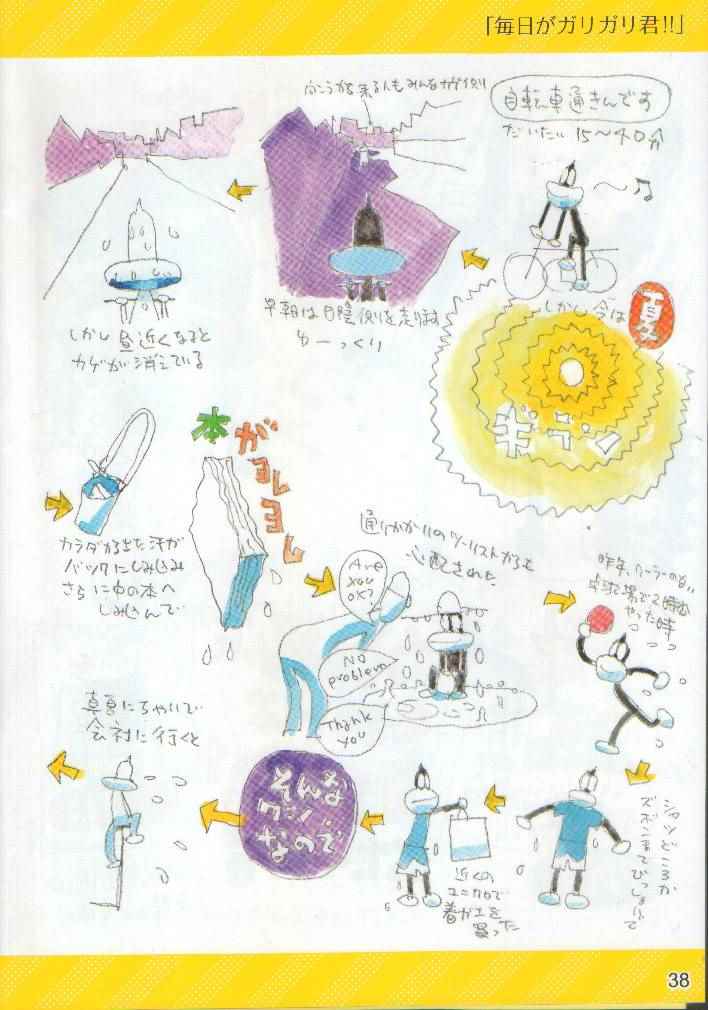 「毎日がガリガリ君!!」
自転車通きんです
だいたい15〜40分
しかし今は
夏
ギラン
向こうから来る人もみんなカゲ側
早朝は日陰側を走ります
ゆーっくり
しかし昼近くなると
カゲが消えている
カラダから出た汗が
バックにしみこみ
さらに中の本へ
しみこんで
本がヨレヨレ
通りかかりのツーリストからも
心配された
Are
you
OK?
NO
problem
Thank
you
昨年、クーラーのない
卓球場で2時間
やった時
シャツどころか
ズボンまでびっしょりで
近くの
ユニクロで
着がエを
買った
そんな
ワケ
なので
真夏にちゃいで
会社に行くと
38